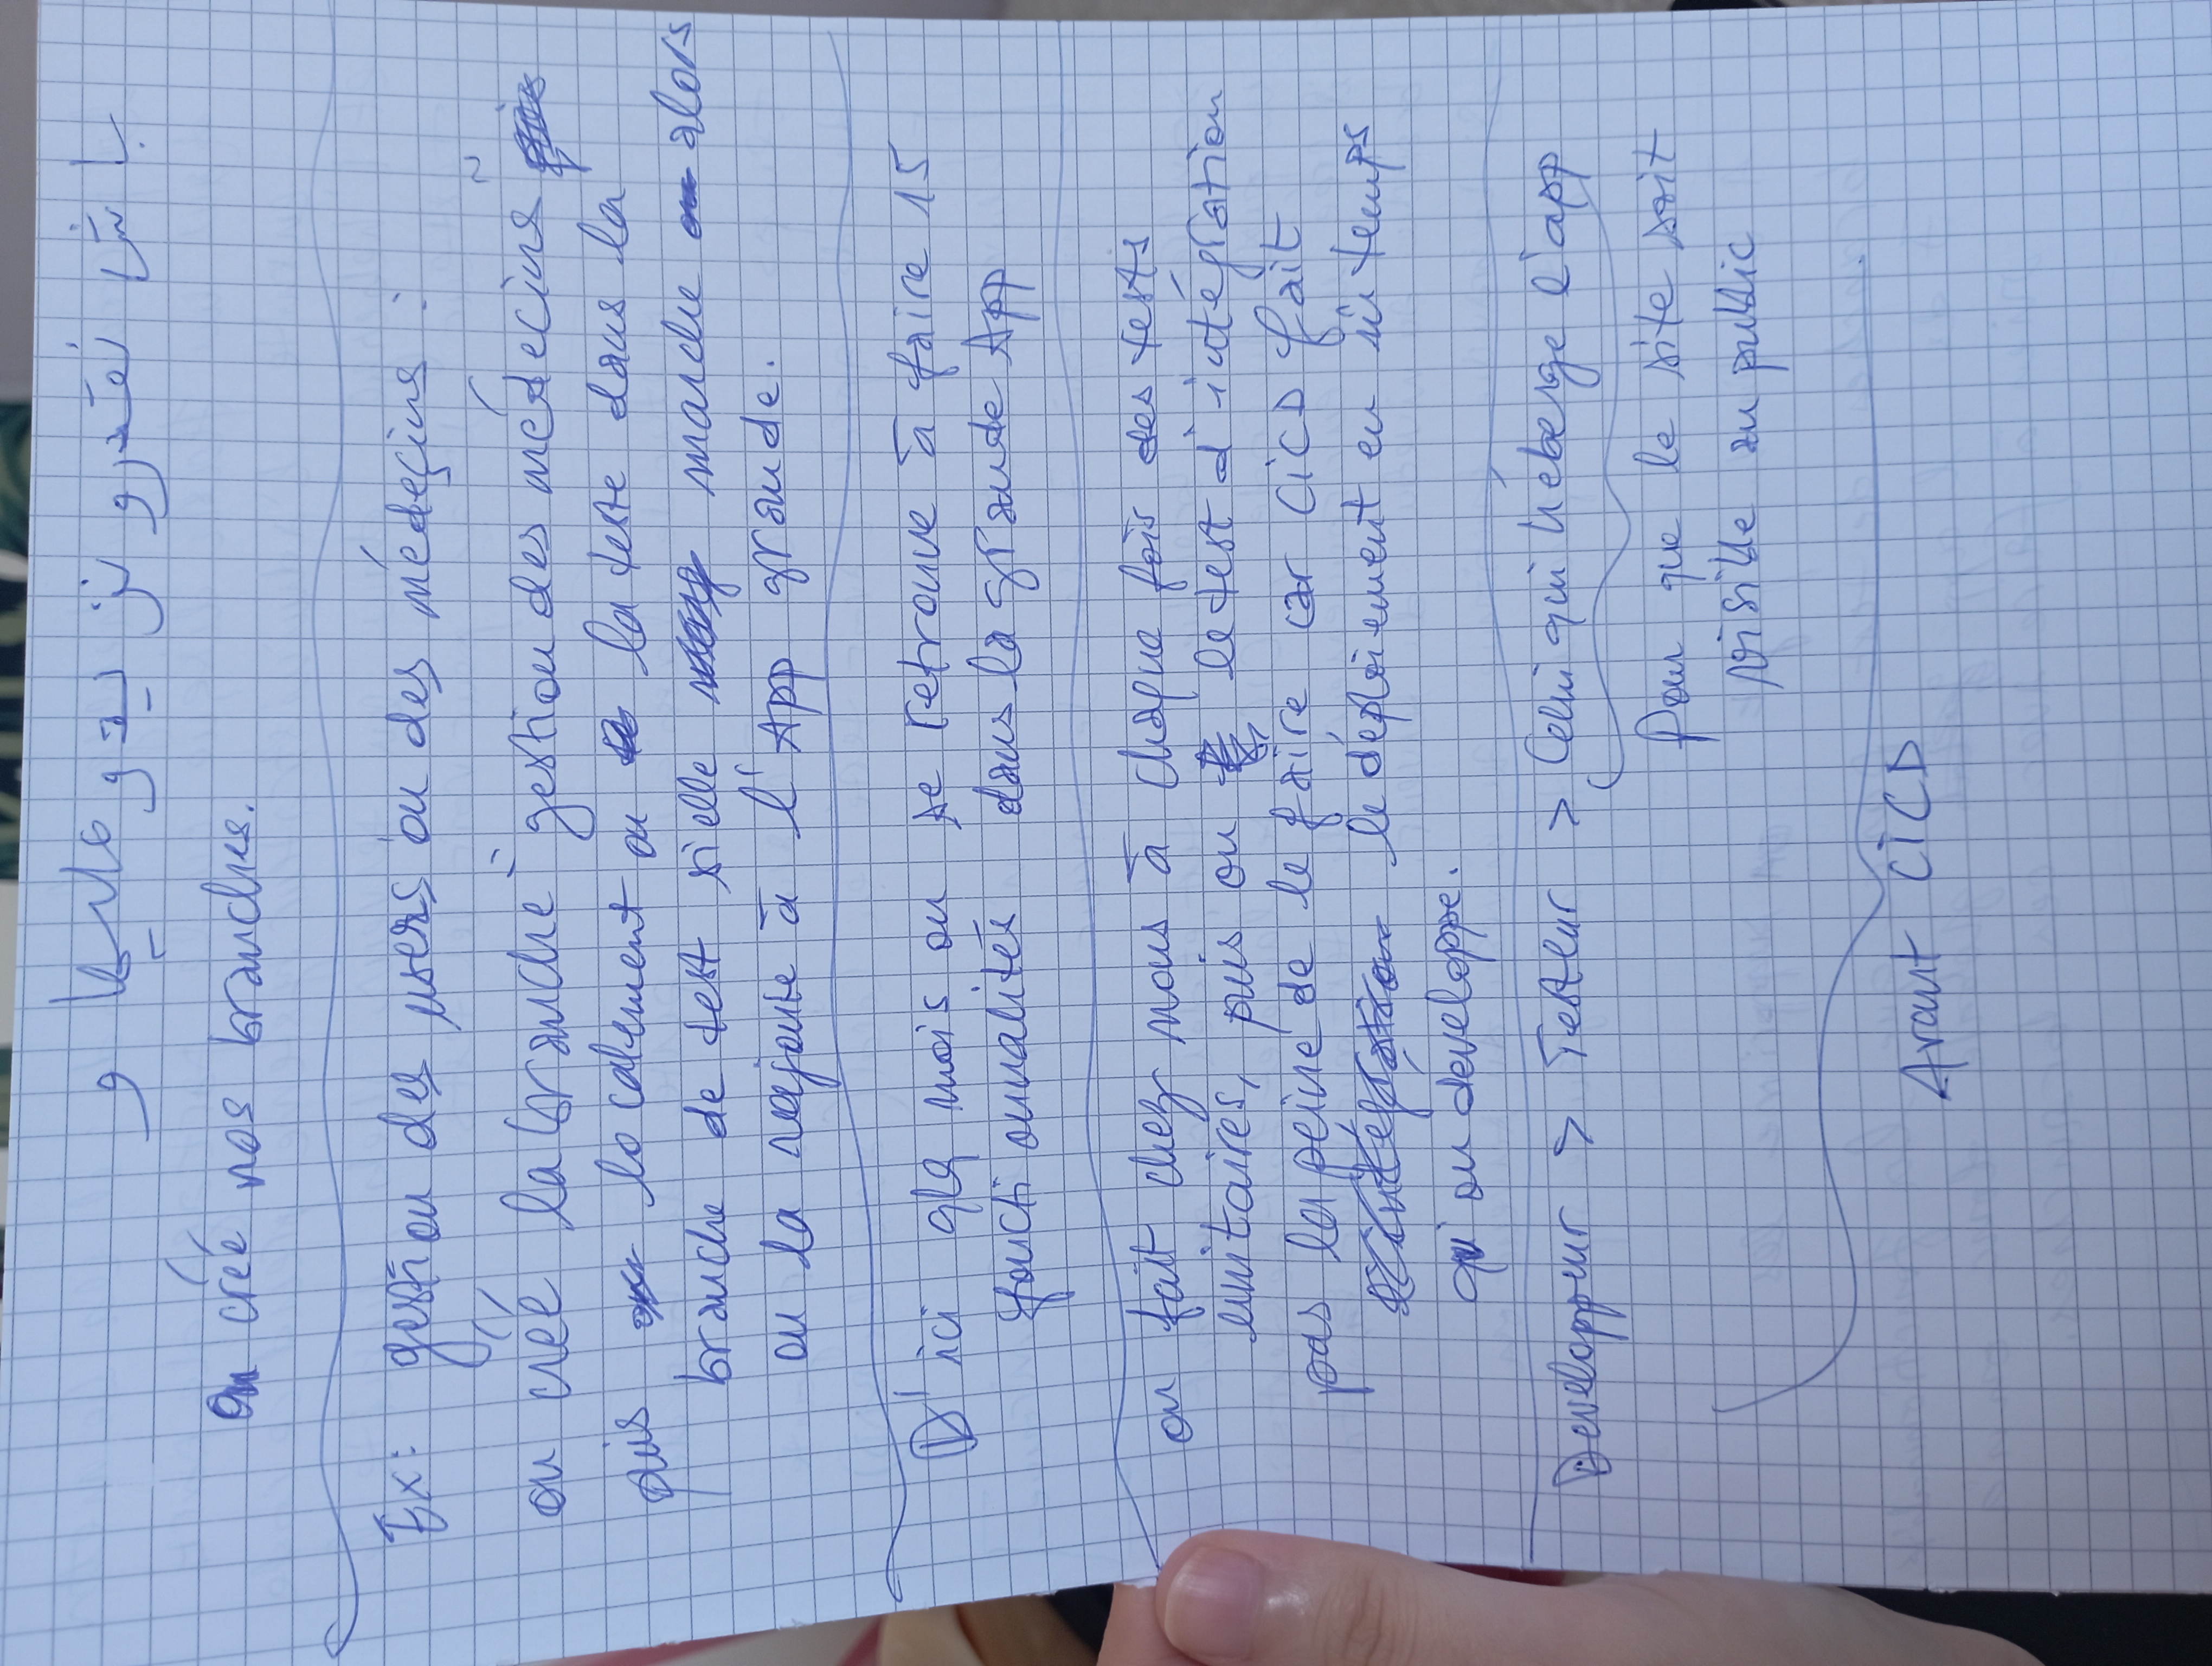 باش نقدرو نزيدو عليها و
On créé nos branches.
Ex: gestion des users ou des médecins :
on créé la branche "gestion des médecins"
puis localement on la teste dans la
branche de test si elle marche alors
on la rajoute à l'App grande.
D'ici qlq mois on se retrouve à faire 15
fonctionnalités dans la grande App
on fait chez nous à chaque fois des tests
unitaires, puis on le test d'intégration
pas la peine de le faire car CiCD fait
le déploiement en mi temps
qu'on développe.
Developpeur > Testeur > Celui qui héberge l'app
Pour que le site soit
visible au public
Avant CiCD